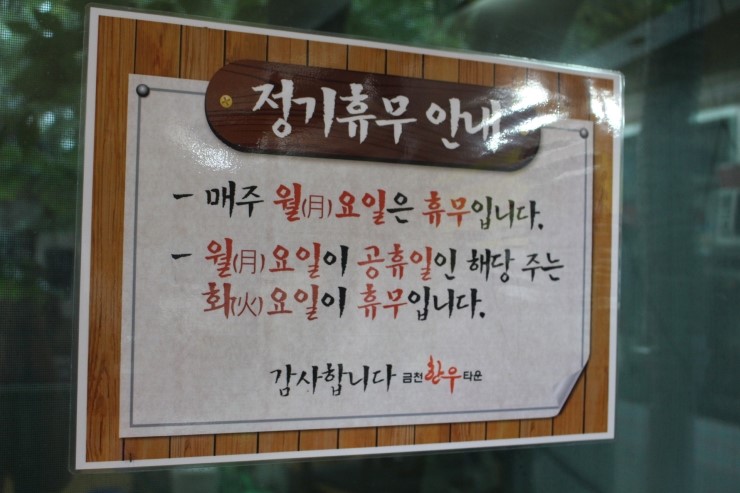 정기휴무 안내
- 매주 월(月)요일은 휴무입니다.
- 월(月)요일이 공휴일인 해당 주는
화(火)요일이 휴무입니다.
감사합니다 금천한우타운